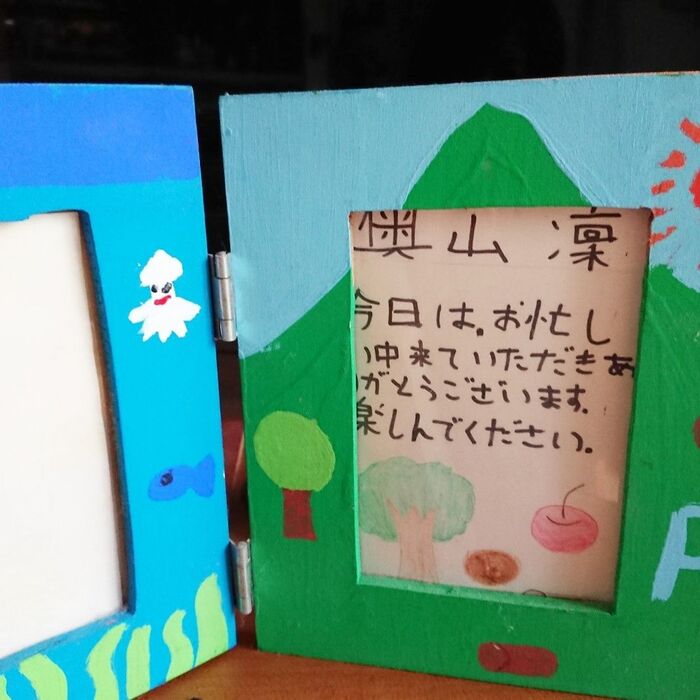 奥山 凜
今日は。お忙し
い中来ていただきあ
りがとうございます。
楽しんでください。